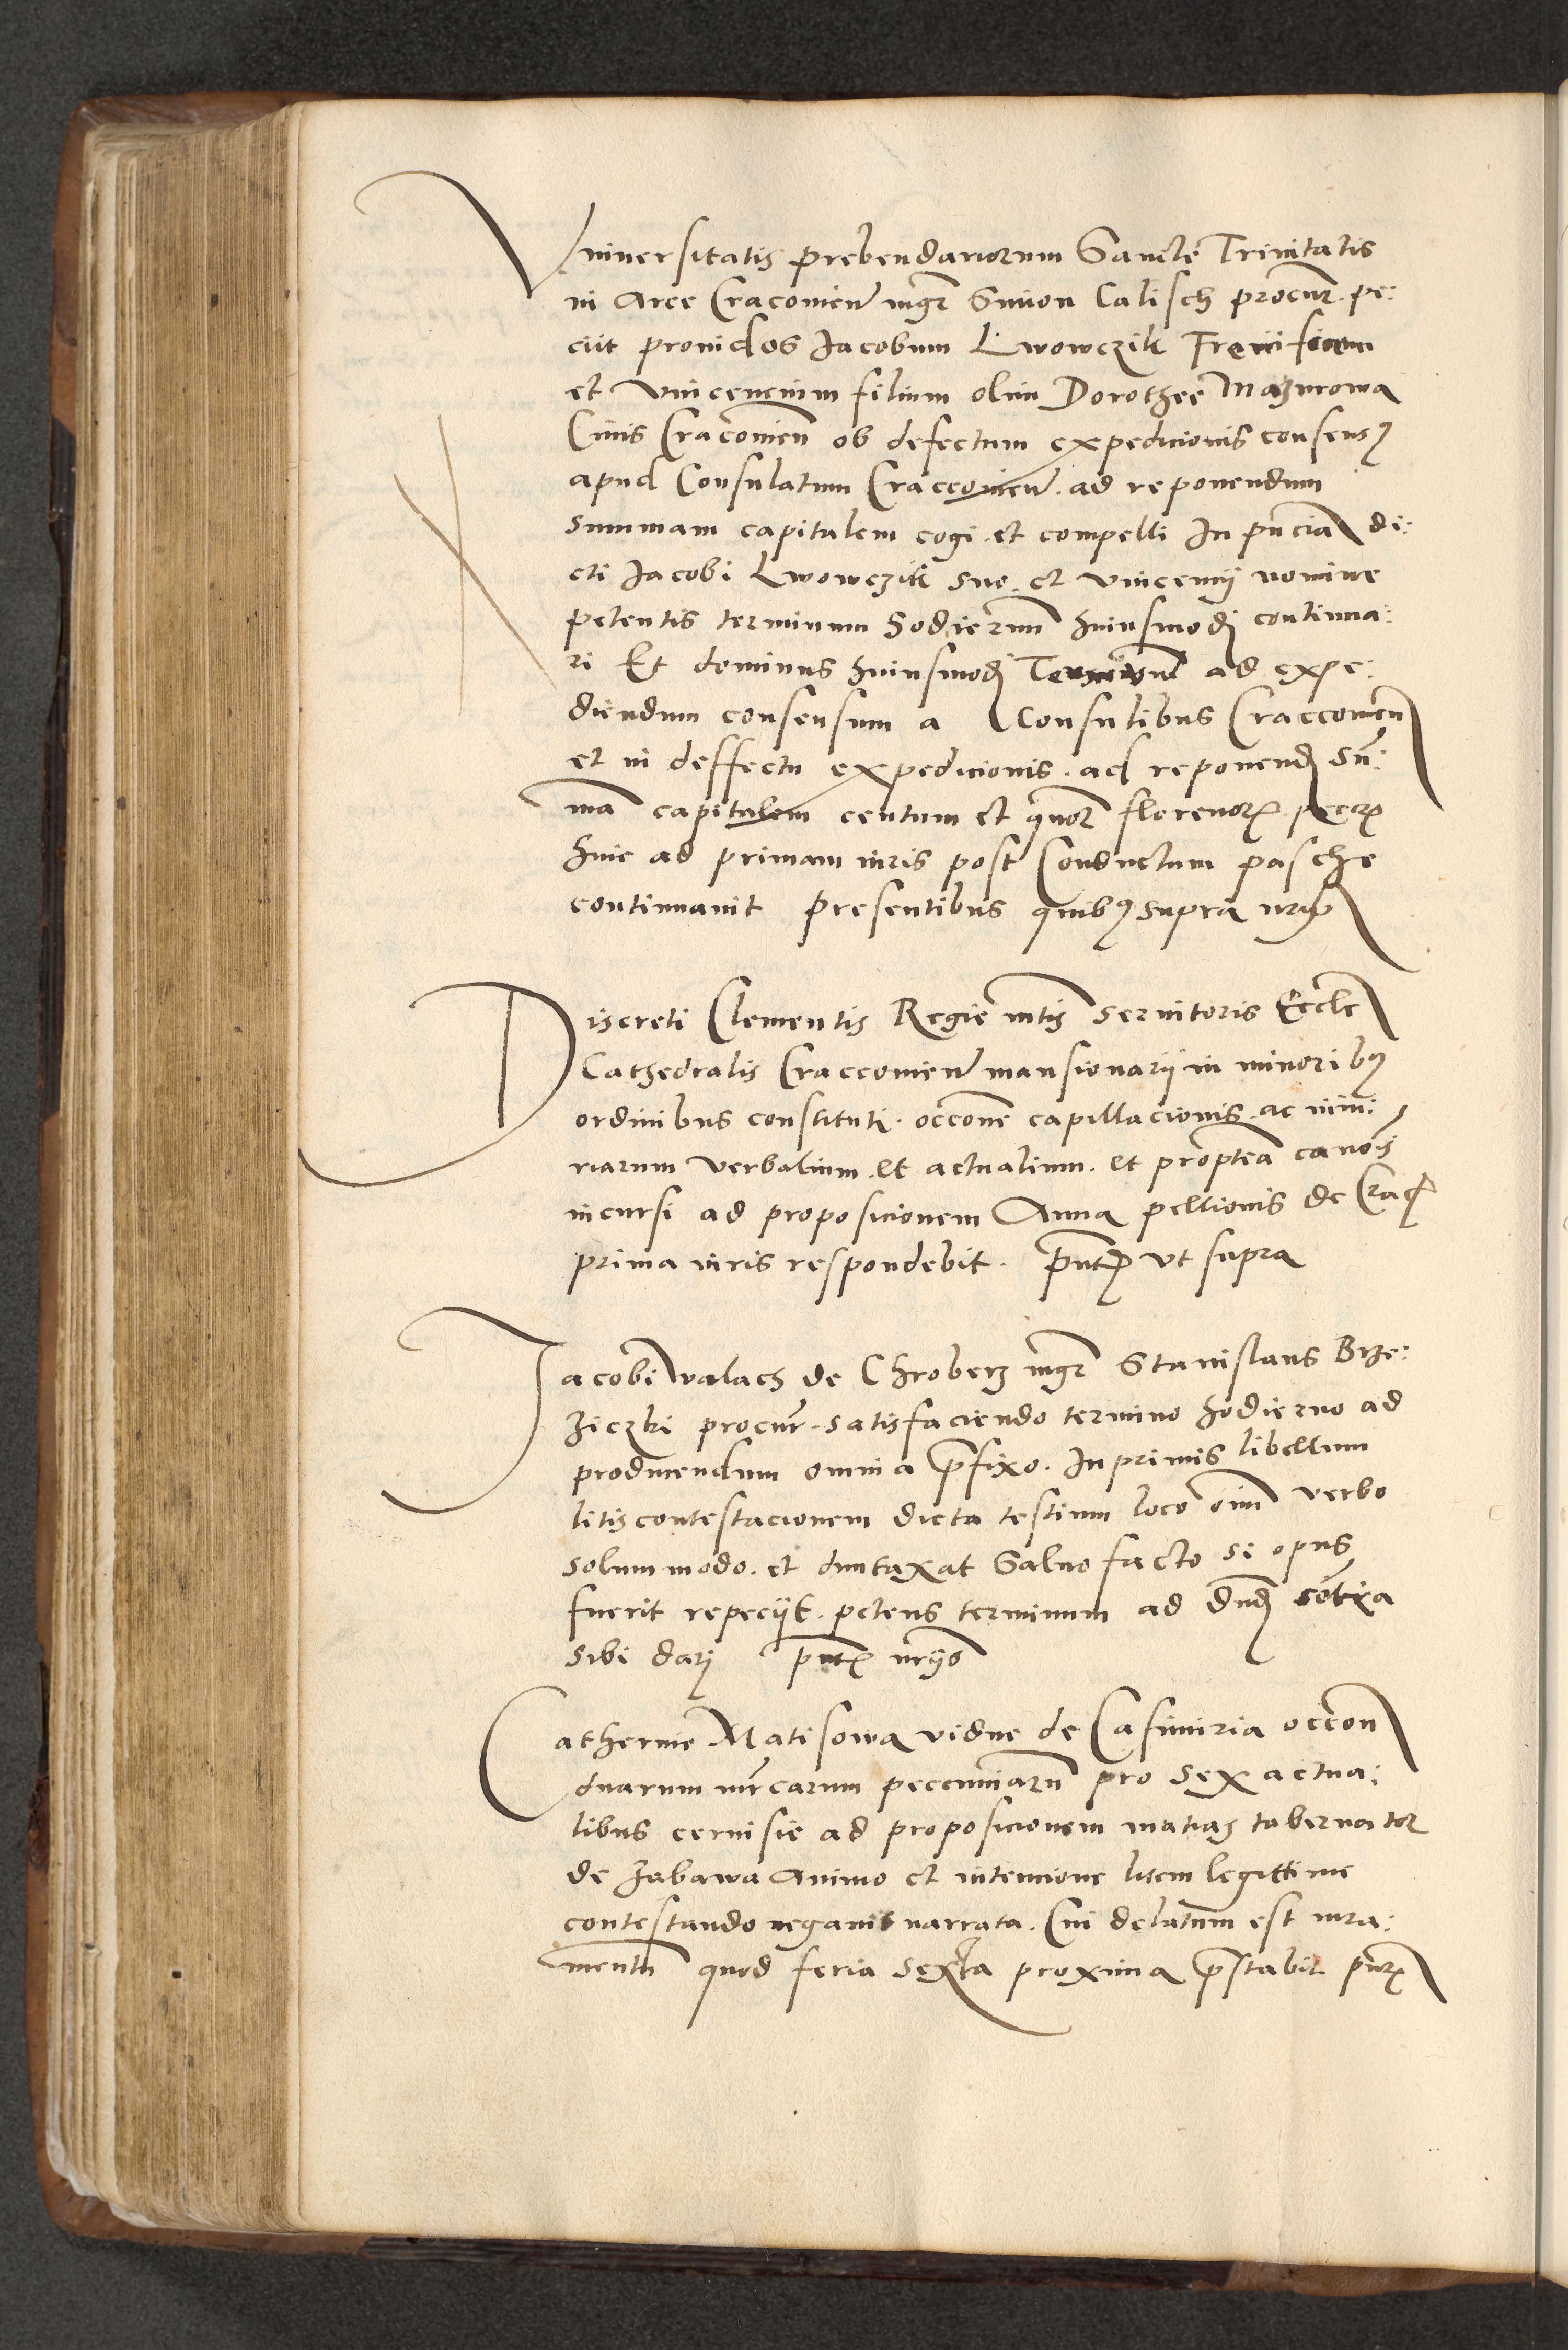 Vniuersitatis prebendariorum Sancte Trinitatis
in Arce Cracouien mgr Simon Calisch procur. pe:
ciit prouidos Jacobum Lwowczik Frenificem
et Vincencium filium olim Dorothee Mazurowa
Ciuis Cracouien ob defectum expedicionis consens9
apud Consulatum Craccouien. ad reponendum
summam capitalem cogi et compelli In pncia di:
cti Jacobi Lwowczik suo. et vincencij nomine
petentis terminum hodiernum huiusmodj continua:
ri Et dominus huiusmodj Terminum ad expe:
diendum consensum a Consulibus Craccouien
et in deffectu expedicionis. ad reponendj sum:
mam capitalem centum et quor florenorum peccar
huic ad primam iuris post Conductum pasche
continuauit presentibus quib9 supra
Discreti Clementis Regie mtis seruitoris Eccle
Cathedralis Craccouien mansionarij in minorib9
ordinibus constituti. occone capillacionis ac iniu:
riarum verbalium. et actualium. et propterea canois
incursi ad proposicionem Anna pellionis de Crac
prima iuris respondebit. pntp vt supra
Jacobi walach de Chroberz mgr Stanislaus Brze:
ziczki procur. satisfaciendo termino hodierno ad
producendum omnia prefixo. In primis libellum
litis contestacionem dicta testium loco oim verbo
solummodo. et duntaxat Saluo facto si opus
fuerit repeciit. petens terminum ad dndj contra
sibi darj pntp
Catherine Matisowa vidue de Casimiria occon
duarum mrcarum pecuniarum pro sex actua:
libus ceruisie ad proposicionem matias tabernator
de Zabawa Animo et intencione litem legittime
contestando negauit narrata. Cui delatum est iura:
mentum quod feria sexta proxima prestabit pntp